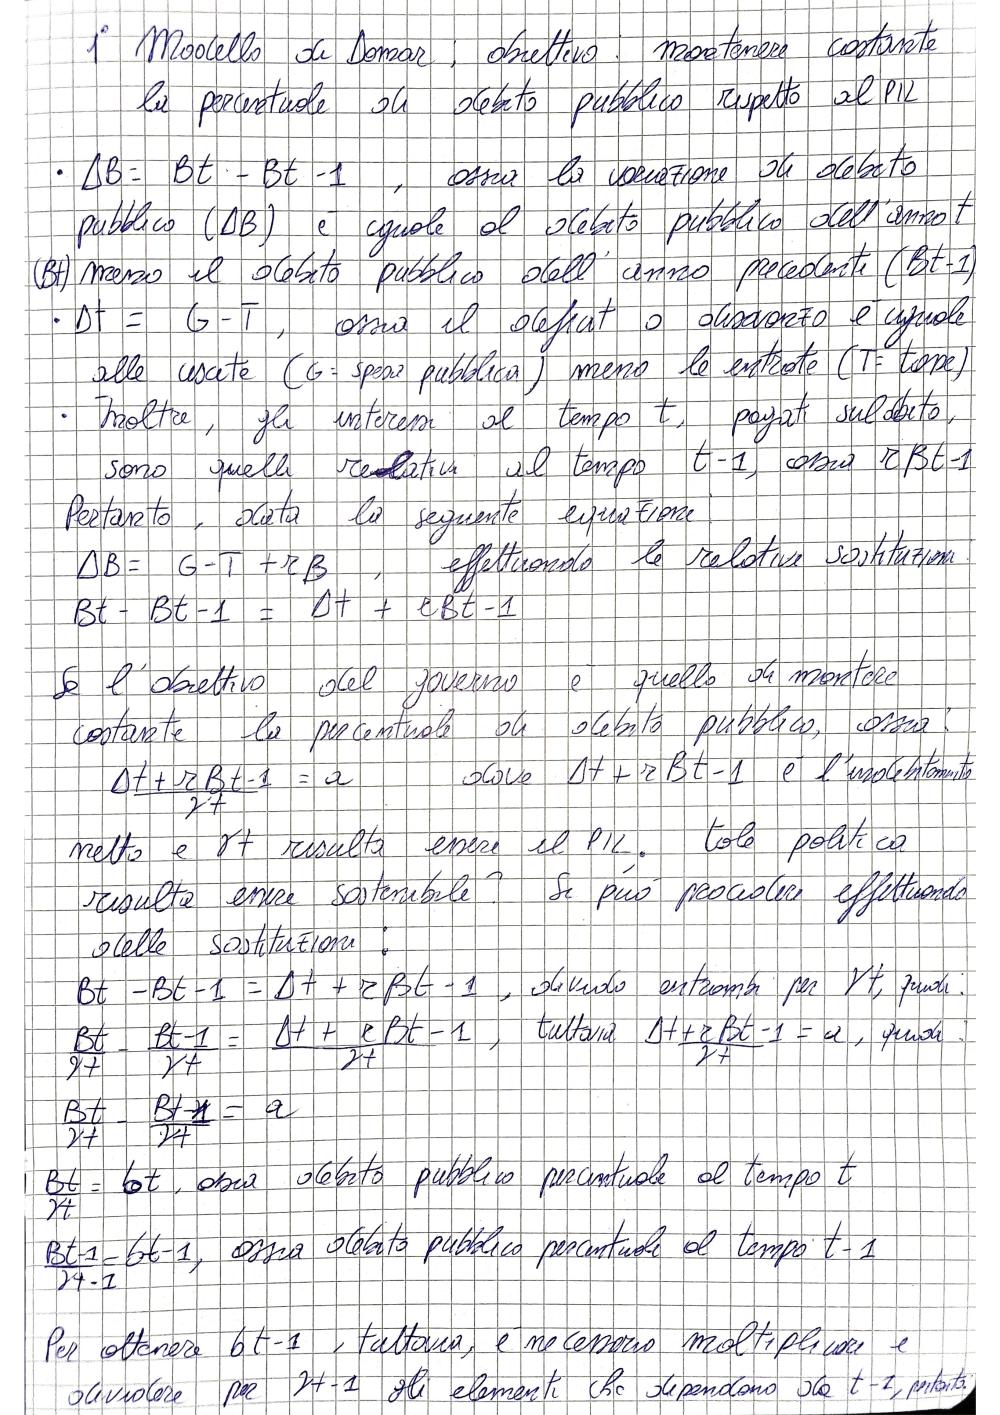 1° Modello di Domar; obiettivo: mantenere costante
la percentuale di debito pubblico rispetto al PIL
· ΔB = Bt - Bt-1, ossia la variazione di debito
pubblico (ΔB) è uguale al debito pubblico dell'anno t
(Bt) meno il debito pubblico dell'anno precedente (Bt-1)
· Δt = G-T, ossia il deficit o disavanzo è uguale
alle uscite (G = spesa pubblica) meno le entrate (T = tasse)
· Inoltre, gli interessi al tempo t, pagati sul debito,
sono quelli relativi al tempo t-1, ossia rBt-1
Pertanto, data la seguente equazione:
ΔB = G-T + rB, effettuando le relative sostituzioni:
Bt - Bt-1 = Δt + rBt-1
Se l'obiettivo del governo è quello di mantere
costante la percentuale di debito pubblico, ossia:
Δt + rBt-1 / Yt = a dove Δt + rBt-1 è l'indebitamento
netto e Yt risulta essere il PIL. Tale politica
risulta essere sostenibile? Si può procedere effettuando
delle sostituzioni:
Bt - Bt-1 = Δt + rBt-1, divido entrambi per Yt, quindi:
Bt/Yt - Bt-1/Yt = Δt + rBt-1 / Yt, tuttavia Δt + rBt-1 / Yt = a, quindi:
Bt/Yt - Bt-1/Yt = a
Bt/Yt = bt, ossia debito pubblico percentuale al tempo t
Bt-1/Yt-1 = bt-1, ossia debito pubblico percentuale al tempo t-1
Per ottenere bt-1, tuttavia, è necessario moltiplicare e
dividere per Yt-1 gli elementi che dipendono da t-1, pertanto: